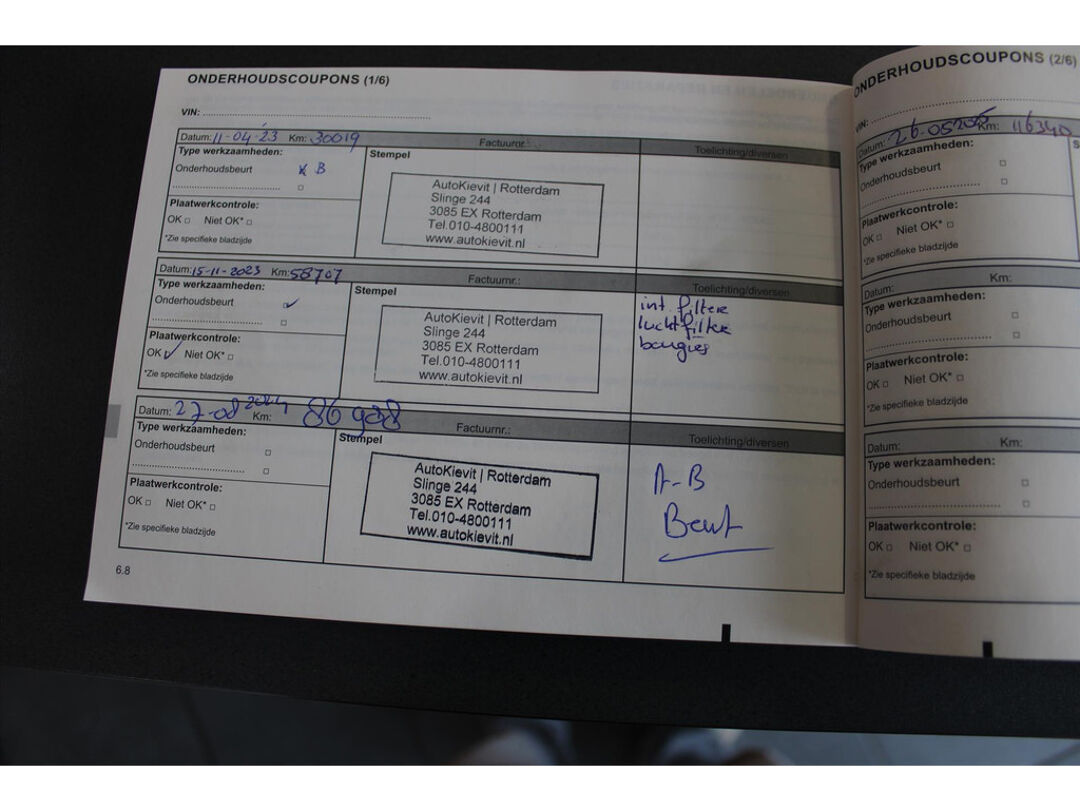 ONDERHOUDSCOUPONS (1/6)
VIN:
Datum: 11-04-23 Km: 30019 Factuurnr. Toelichting/diversen
Type werkzaamheden:
Onderhoudsbeurt x B
Stempel
AutoKievit | Rotterdam
Slinge 244
3085 EX Rotterdam
Tel.010-4800111
www.autokievit.nl
Plaatwerkcontrole:
OK Niet OK*
*Zie specifieke bladzijde
Datum: 15-11-2023 Km: 58707 Factuurnr.: Toelichting/diversen
Type werkzaamheden:
Onderhoudsbeurt
Stempel
AutoKievit | Rotterdam
Slinge 244
3085 EX Rotterdam
Tel.010-4800111
www.autokievit.nl
int. filter
luchtfilter
bougies
Plaatwerkcontrole:
OK Niet OK*
*Zie specifieke bladzijde
Datum: 27-08 2024 Km: Factuurnr.: Toelichting/diversen
Type werkzaamheden:
Onderhoudsbeurt
Stempel
AutoKievit | Rotterdam
Slinge 244
3085 EX Rotterdam
Tel.010-4800111
www.autokievit.nl
A-B
Beurt
Plaatwerkcontrole:
OK Niet OK*
*Zie specifieke bladzijde
6.8
ONDERHOUDSCOUPONS (2/6)
VIN:
Datum: 26-05 2025 Km: 116340
Type werkzaamheden:
Onderhoudsbeurt
Plaatwerkcontrole:
OK Niet OK*
*Zie specifieke bladzijde
Datum: Km:
Type werkzaamheden:
Onderhoudsbeurt
Plaatwerkcontrole:
OK Niet OK*
*Zie specifieke bladzijde
Datum: Km:
Type werkzaamheden:
Onderhoudsbeurt
Plaatwerkcontrole:
OK Niet OK*
*Zie specifieke bladzijde